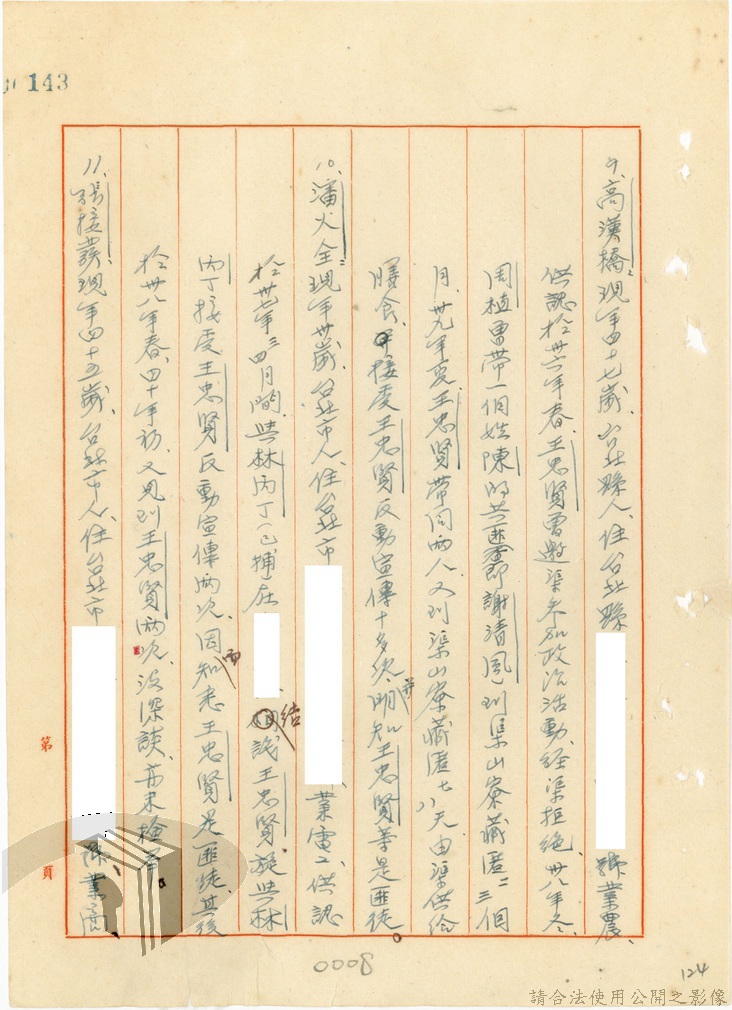 143
9、高漢橋、現年四十七歲、台北縣人、住台北縣
號業農、
供認於卅六年春、王忠賢曾邀渠參加政治活動、經渠拒絕、卅八年冬、
周植曾帶一個姓陳的共匪即謝清風到渠山寮藏匿二三個
月、卅九年夏、王忠賢帶同兩人又到渠山寮藏匿七八天、由渠供給
膳食、接受王忠賢反動宣傳十多次、並明知王忠賢等是匪徒。
10、潘火全、現年卅歲、台北市人、住台北市
業電工、供認
於卅七年三四月間、與林丙丁(已捕在
結識王忠賢、旋與林
丙丁接受王忠賢反動宣傳兩次、因而知悉王忠賢是匪徒、其後
於卅八年春、四十年初、又見到王忠賢兩次、沒深談、亦未檢舉。
11、張接發、現年四十五歲、台北市人、住台北市
號業商、
第
頁
0008
124
請合法使用公開之影像